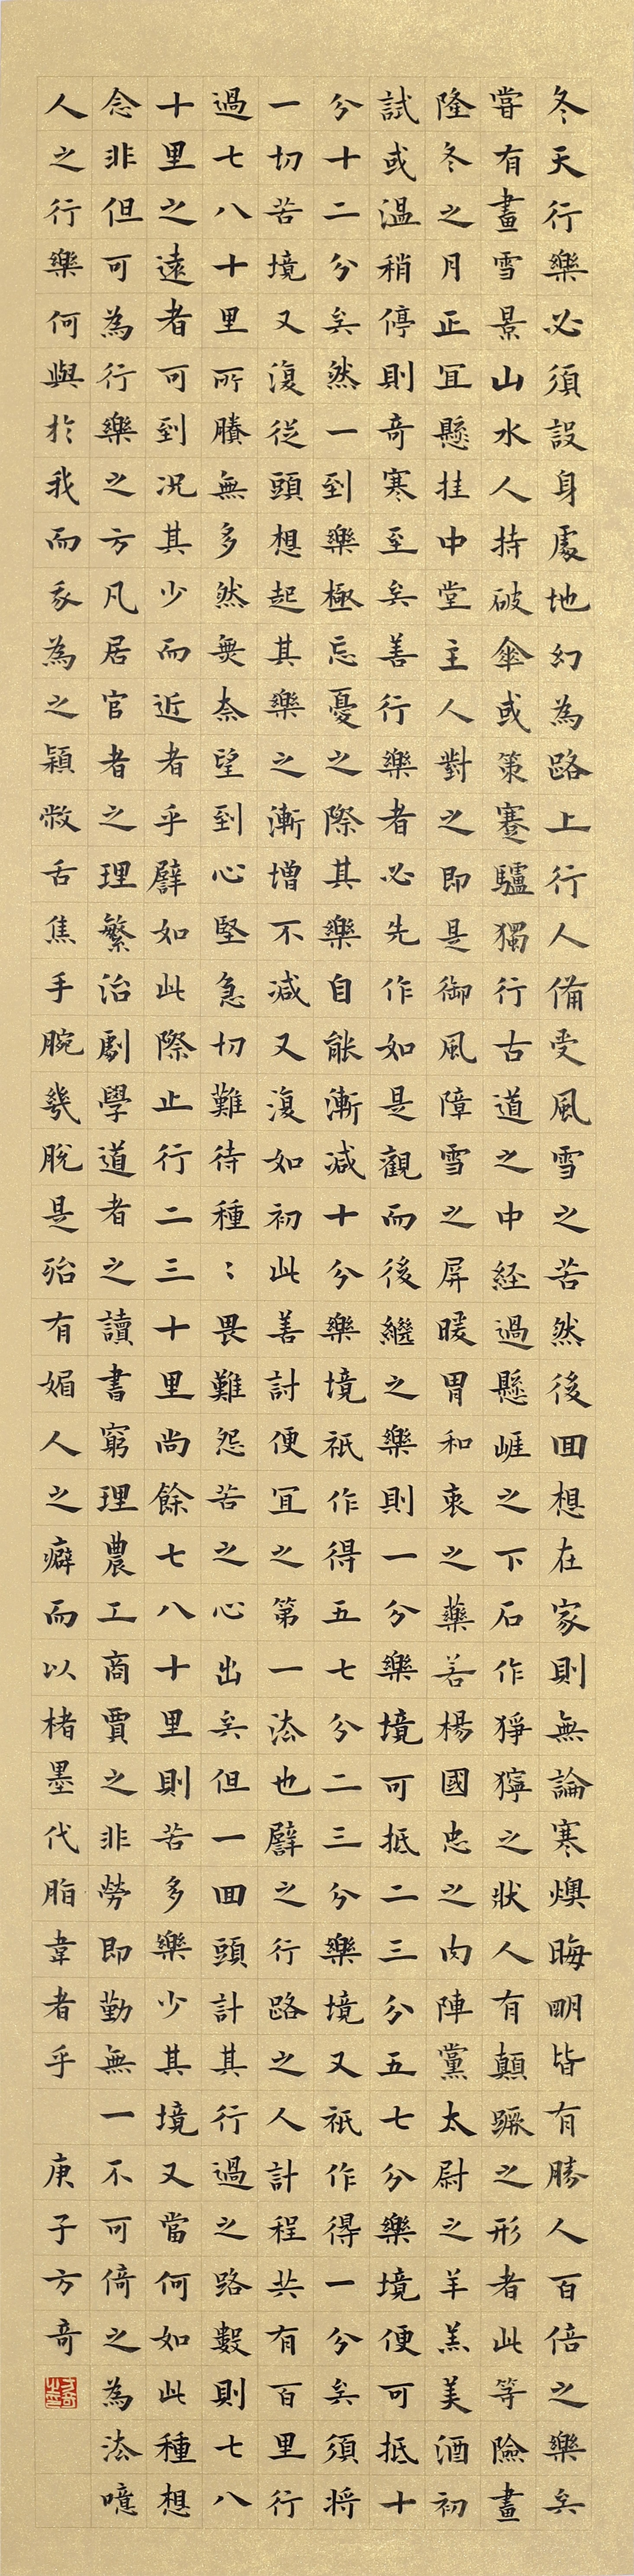 冬天行樂必須設身處地幻為路上行人備受風雪之苦然後回想在家則無論寒燠晦明皆有勝人百倍之樂矣
嘗有畫雪景山水人持破傘或策蹇驢獨行古道之中経過懸崖之下石作猙獰之狀人有顛蹶之形者此等險畫
隆冬之月正宜懸挂中堂主人對之即是御風障雪之屏暖胃和衷之藥若楊國忠之肉陣黨太尉之羊羔美酒初
試或溫稍停則奇寒至矣善行樂者必先作如是觀而後繼之樂則一分樂境可抵二三分五七分樂境便可抵十
分十二分矣然一到樂極忘憂之際其樂自能漸減十分樂境祇作得五七分二三分樂境又祇作得一分矣須將
一切苦境又復從頭想起其樂之漸增不減又復如初此善討便宜之第一法也譬之行路之人計程共有百里行
過七八十里所賸無多然無奈望到心堅急切難待種：畏難怨苦之心出矣但一回頭計其行過之路數則七八
十里之遠者可到况其少而近者乎譬如此際止行二三十里尚餘七八十里則苦多樂少其境又當何如此種想
念非但可為行樂之方凡居官者之理繁治劇學道者之讀書窮理農工商賈之非勞即勤無一不可倚之為法噫
人之行樂何與於我而我為之穎敝舌焦手腕幾脫是殆有媚人之癖而以楮墨代脂韋者乎
庚子方奇